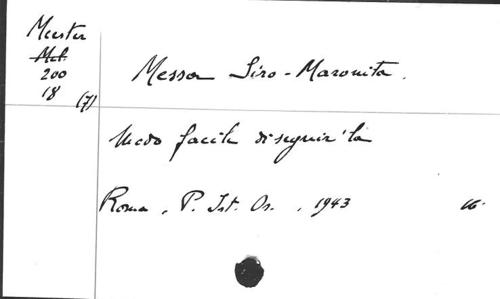 Meester
Mel.
200
18 (7)
Messa Siro-Maronita.
Modo facile di seguir'la
Roma, P. Ist. Or., 1943